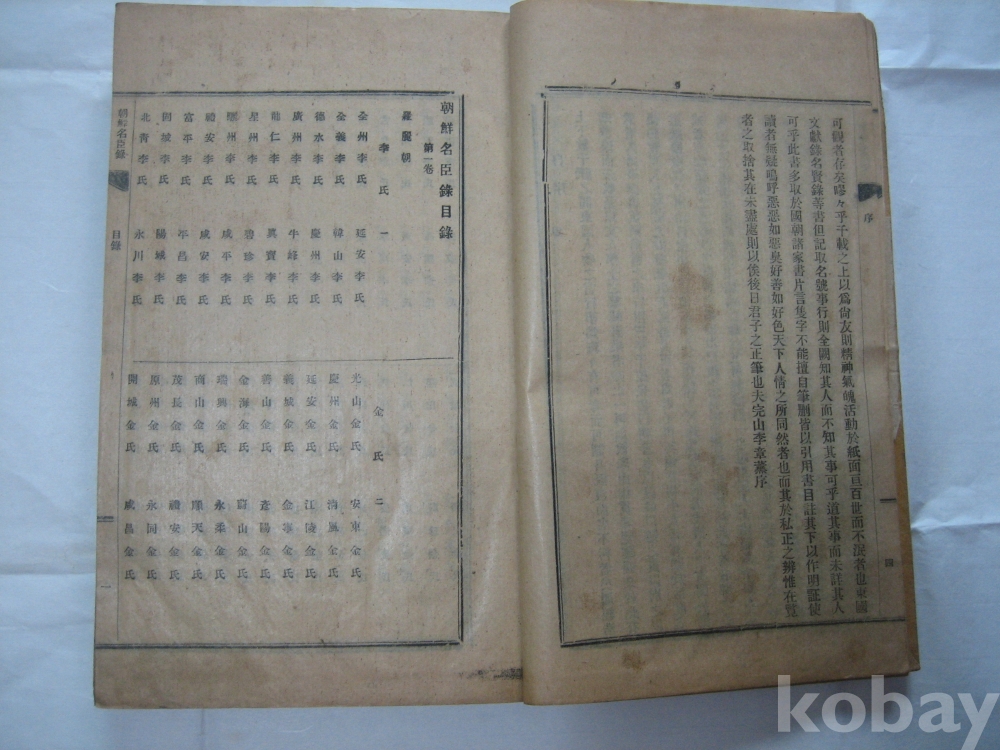 序
四
可觀者存矣嘐々乎千載之上以爲尙友則精神氣魄活動於紙面亘百世而不泯者也東國
文獻錄名賢錄等書但記取名號事行則全闕知其人而不知其事可乎道其事而未詳其人
可乎此書多取於國朝諸家書片言隻字不能擅自筆刪皆以引用書目註其下以作明証使
讀者無疑嗚呼惡惡如惡臭好善如好色天下人情之所同然者也而其於私正之辨惟在覽
者之取捨其在未盡處則以俟後日君子之正筆也夫完山李章薰序
朝鮮名臣錄目錄
第一卷
羅麗朝
李氏 一
全州李氏 延安李氏
全義李氏 韓山李氏
德水李氏 慶州李氏
廣州李氏 牛峰李氏
龍仁李氏 眞寶李氏
星州李氏 碧珍李氏
驪州李氏 咸平李氏
禮安李氏 咸安李氏
富平李氏 平昌李氏
開城李氏 陽城李氏
北靑李氏 永川李氏
金氏 二
光山金氏 安東金氏
慶州金氏 淸風金氏
延安金氏 江陵金氏
義城金氏 金寧金氏
善山金氏 彦陽金氏
金海金氏 蔚山金氏
瑞興金氏 永柔金氏
商山金氏 順天金氏
茂長金氏 禮安金氏
原州金氏 永同金氏
開城金氏 咸昌金氏
朝鮮名臣錄 目錄
一
kobay